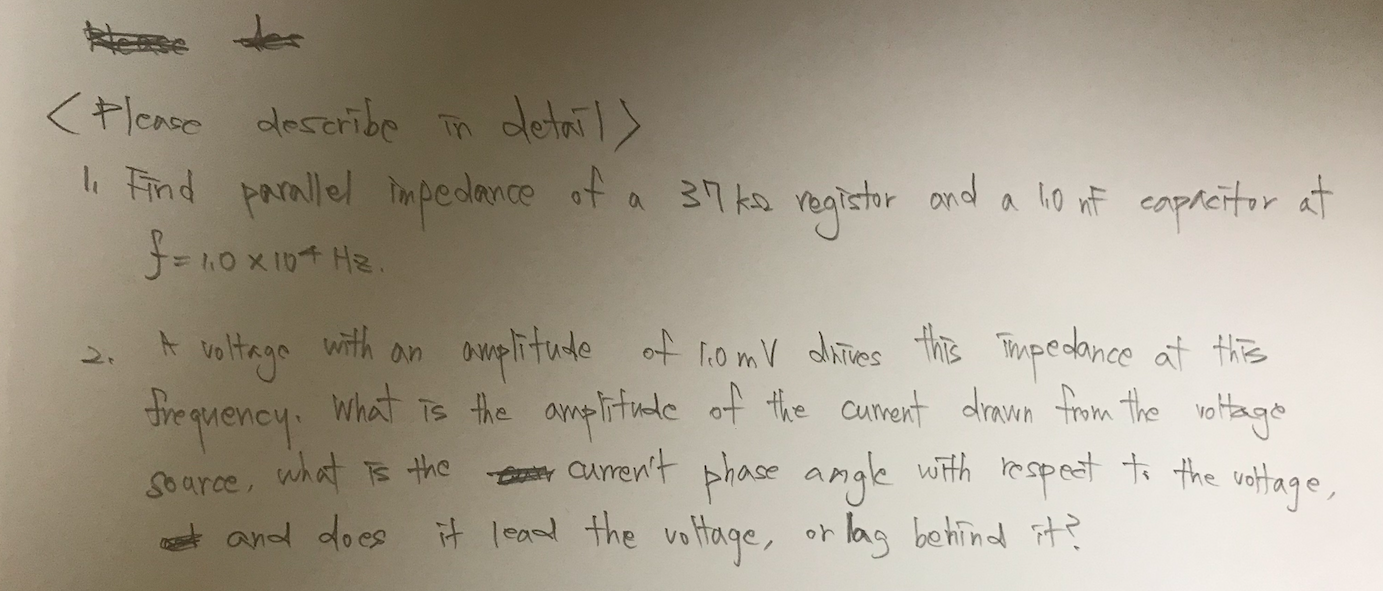 <Please describe in detail>
1. Find parallel impedance of a 37 kΩ registor and a 1.0 nF capacitor at
f = 1.0 × 10⁴ Hz.
2. A voltage with an amplitude of 1.0 mV drives this impedance at this
frequency. What is the amplitude of the current drawn from the voltage
source, what is the curren't phase angle with respect to the voltage,
and does it lead the voltage, or lag behind it?